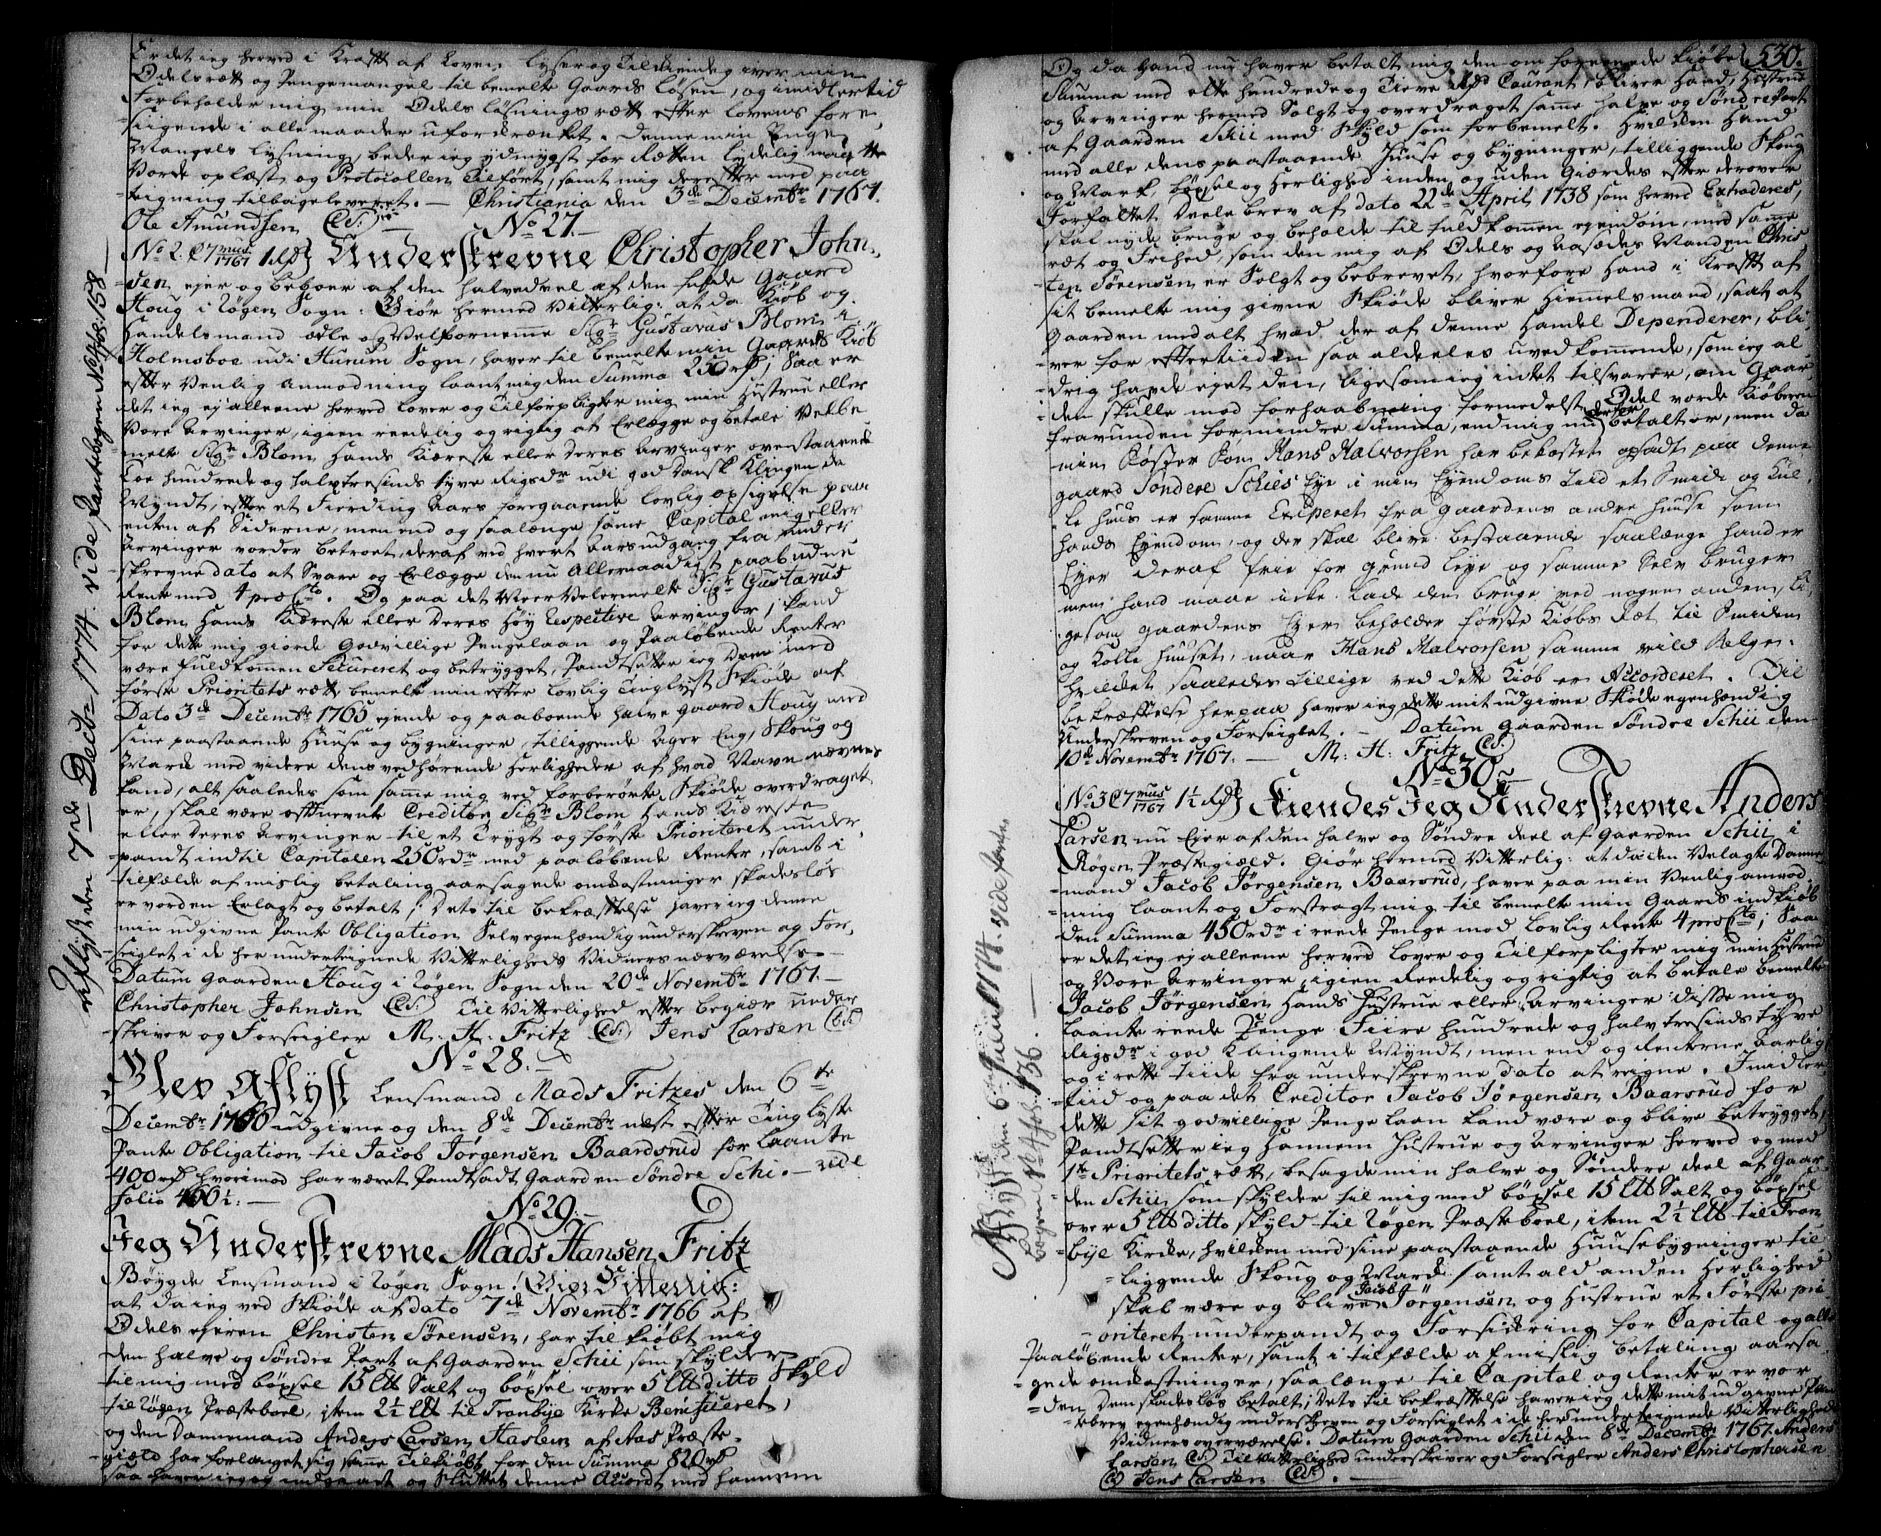 Er det ieg herved i Kraft af Loven lyser og Tilkiendegiver min
Odelsrætt og Pengemangel til bemelte Gaards Løsen, og imidlertid
Forbeholder mig min Odels løsnings rætt efter Lovens fore
-siigende i alle maader uforkrænket. Denne min Penge
Mangels lysning, beder ieg ydmygst for Rætten lydelig maatte
Vorde oplæst og Protocollen Tilført, samt mig derefter med paa
-teigning tilbageleveret. — Christiania den 3de Decembr 1767.
Ole Amundsen
No 27.
No 2. 1767 Underskrevne Christopher John-
-sen ejer og beboer af den halvedeel af den fulde Gaard
Houg i Røgen Sogn: Giør hermed Vitterlig: at da Kiøb og
Handelsmand ædle og Velfornemme Sigr Gustavus Blom i
Holmsboe udi Hurum Sogn, haver til bemelte min Gaards Kiøb
efter Venlig anmodning laant mig den Summa 250 rd; Saa er
det ieg ej alleene herved lover og Tilforpligter mig min Hustrue eller
Vore Arvinger, igien reedelig og rigtig at Erlægge og betale Velbe
melte Sigr Blom hands Kiereste eller Deres Arvinger ovenstaaende
Toe hundrede og halvtresinds tyve Rigsdr udi god Dansk Klingende
Myndt, efter et Fierding Aars foregaaende lovlig opsigelse paa
enten af Siderne, men end og saalænge same Capital mig eller
Arvinger vorder betroet, deraf ved hvert Aars udgang fra Under
skrevne dato at Svare og Erlægge den nu Allernaadigst paabudne
Rente med 4 pro Cto. Og paa det Meer Velermelte Sigr Gustavus
Blom hands Kiæreste eller Deres Høy Respective Arvinger, kand
for dette mig giorde Godvillige Pengelaan og Paaløbende Renter
være fuldkommen Secureret og betrygget, Pandtsetter ieg Dem med
første Prioritets rætt bemelte min efter lovlig Tinglyst Skiøde af
Dato 3de Decembr 1765 ejende og paaboende halve gaard Houg med
sine paastaaende Huuse og bygninger, tilliggende Ager Eng, Skoug og
Mark med videre dens vedhørende herligheder af hvad Navn nævnes
kand, alt saaledes som samme mig ved forberørte Skiøde overdraget
er, skal være ofternevnte Creditor Sigr Blom hands Kiæreste
eller Deres Arvinger til et Trygt og første Prioriteret under-
pandt indtil Capitalen 250 rdr med paaløbende Renter, samt i
tilfælde af mislig betaling aarsagede omkostninger skadesløs
er vorden Erlagt og betalt; Dets til bekræftelse haver ieg denne
min udgivne Pante Obligation Selvegenhændig underskreven og For-
seiglet i de her underteignede Vitterligheds Vidners nærværelse.
Datum Gaarden Houg i Røgen Sogn den 20de Novembr 1767.—
Christopher Johnsen Til Vitterlighed efter begiær under
skriver og Forseigler M. H. Fritz Jens Larsen
No 28.
Blev Aflyst Lensmand Mads Fritzes den 6te
Decembr 1766 udgivne og den 8de Decembr næst efter Ting lyste
Pante Obligation til Jacob Jørgensen Baardsrud for laante
400 rd hvorimod har været Pandtsadt Gaarden Søndre Schi.— vide
Folio 460½.—
No 29.
Jeg Underskrevne Mads Hansen Fritz
Bøygde Lensmand i Røgen Sogn! Giør Vitterlig:
at da ieg ved Skiøde af dato 7de Novembr 1766 af
Odels ejeren Christen Sørensen, har til kiøbt mig
den halve og Søndre Part af Gaarden Schii som skylder
til mig med bøxsel 15 Lb Salt og bøxsel over 5 Lb ditto Skyld
til Røgen Præsteboel, item 2½ Lb til Tranbye Kirke Beneficeret,
og den Dannemand Anders Larsen Haslein af Aas Præste-
-gield har forlanget sig same Tilkiøbt for den Summa 820 rd
saa haver ieg og indgaaet og sluttet denne Accordt med hannem
Aflyst den 7de Decbr 1774. vide Pantebogen No 4 fol: 158
530.
Og da hand nu haver betalt mig den om forenede kiøbe
Summa med otte hundrede og Tieve Rd Courant, bliver hand, Hustrue
og Arvinger hermed Solgt og overdraget samme halve og Søndre Part
af Gaarden Schii med Skyld som forbemelt. Hvilken hand
med alle dens paastaaende Huuse og bygninger, tilliggende Skoug
og Mark, bøxsel og herlighed inden og uden Giærdes efter derover
Forfattet Deele brev af dato 22de April 1738 som herved Extraderes,
skal nyde bruge og beholde til fuldkommen ejendom, med samme
ræt og Frihed, som den mig af Odels og Aasædes Manden Chris
ten Sørensen er Solgt og bebrevet, hvorfore hand i Kraft af
sit bemelte mig givne Skiøde bliver Hiemmelsmand, saat at
Gaarden med alt hvad der af denne Handel Dependerer, bli-
ver for eftertiiden saa aldeeles uvedkommende, som ieg al-
drig havde ejet den, ligesom ieg intet tilsvarer, om Gaar-
den skulle mod forhaabning formedelst Odel vorde Kiøberen
fravunden for mindre Summa, end mig nu derfor betalt er, men da
min Kostes Søn Hans Halvorsen har bekostet opsadt paa denne
gaard Søndere Schies Eye i min Eyendoms Tiid et Smide og Kul-
le huus er samme Exciperet fra gaardens andre huuse som
hands Eyendom, og der skal blive bestaaende saalænge hand er
Eyer deraf frie for grund leye og samme Selv bruger
men hand maae icke lade dem bruge ved nogen anden, li-
gesom gaardens Eyer beholder første Kiøbs Ræt til Smiden
og Kolle huuset, naar Hans Halvorsen samme vild Sælge.
hvilket saaledes tillige ved dette Kiøb er Accorderet. Til
bekræftelse herpaa haver ieg dette mit udgivne Skiøde egenhændig
Underskreven og Forseiglet. — Datum Gaarden Søndre Schii den
10de Novembr 1767. — M. H. Fritz
No 30.
No 3. 1767 Kiendes Jeg Underskrevne Anders
Larsen nu Ejer af den halve og Søndre deel af Gaarden Schii i
Røgen Præstegield. Giør hermed Vitterlig: at da den Velagte Danne
mand Jacob Jørgensen Baarsrud, haver paa min Venlig anmod
ning laant og Forstragt mig til bemelte min Gaards indkiøb
den Summa 450 rdr i reede Penge mod lovlig Rente 4 pro Cto; Saa
er det ieg ej alleene herved lover og Tilforpligter mig min Hustrue
og Vore Arvinger, igien Reedelig og rigtig at betale bemelte
Jacob Jørgensen hands Hustrue eller Arvinger disse mig
laante reede Penge Fiire hundrede og halvtresinds tyve
Rigsdr i god Klingende Myndt, men end og Renterne aarlig
og i rette tiide fra underskrevne dato at regne. Imidler-
tiid og paa det Creditor Jacob Jørgensen Baarsrud for
dette sit godvillige Pengelaan kand være og blive betrygget,
Pandtsetter ieg hannem Hustrue og Arvinger herved og med
1te Prioritets rætt, besagde min halve og Søndere deel af Gaar-
den Schii som skylder til mig med bøxsel 15 Lb Salt og bøxsel
over 5 Lb ditto skyld til Røgen Præsteboel, item 2½ Lb til Tran
bye Kirke, hvilken med sine paastaaende Huuse bygninger til
liggende Skoug og Mark samt ald anden herlighed
skal være og bliver Jacob Jørgensen og Hustrue et Første pri
-oriteret underpandt og Forsickring for Capital og alle
Paaløbende Renter, samt i tilfælde af mislig betaling aarsa-
gede omkostninger, saa længe til Capital og Renter er vor
-den Dem skadesløs betalt; Dets til bekræftelse haver ieg dette mit udgivne Pan
-tebrev egenhændig underskreven og Forseiglet i de her underteignede Vitterligheds
Vidners overværelse. Datum Gaarden Schii den 8de Decembr 1767. Anders
Larsen Til Vitterlighed underskriver og Forseigler Anders Christophersen
Jens Larsen
Aflyst den 6te Julii 1774. vide Pante
bogen No 4 fol: 136